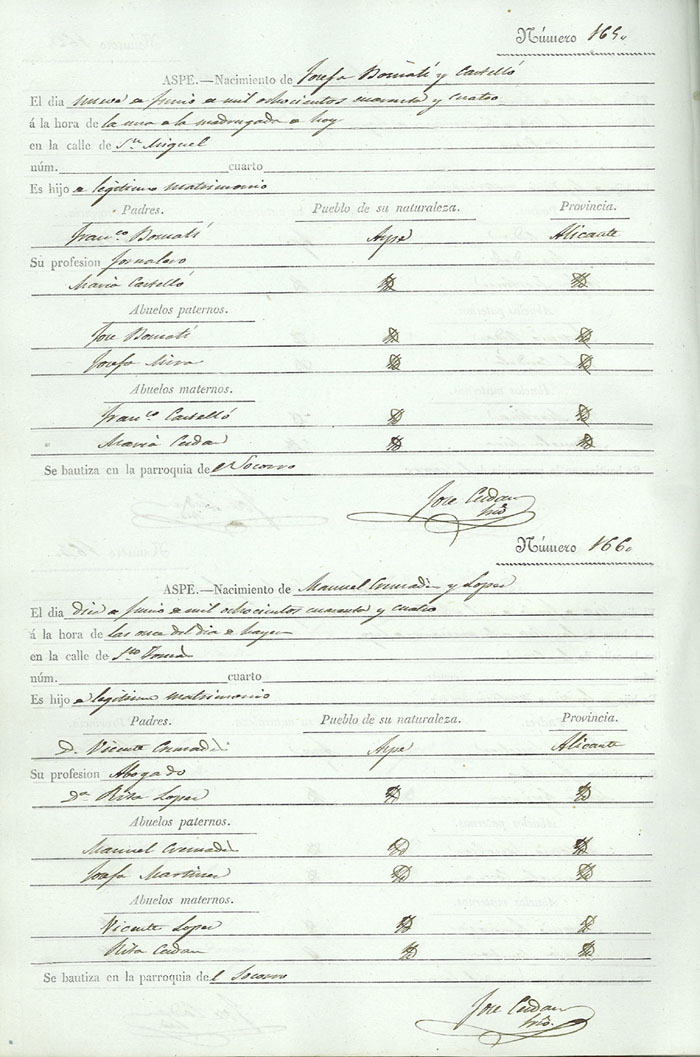 Número 165.
ASPE.—Nacimiento de Josefa Bornatí y Castelló
El dia nueve de Junio de mil ochocientos cuarenta y cuatro
á la hora de la una de la madrugada de hoy
en la calle de Sn Miguel
núm. cuarto
Es hijo de legitimo matrimonio
Padres. Pueblo de su naturaleza. Provincia.
Franco Bornatí Aspe Alicante
Su profesion Jornalero
Maria Castelló Yd Yd
Abuelos paternos.
Jose Bornatí Yd Yd
Josefa Mira Yd Yd
Abuelos maternos.
Franco Castelló Yd Yd
Maria Cerdan Yd Yd
Se bautiza en la parroquia del Socorro
Jose Cerdan
Número 166.
ASPE.—Nacimiento de Manuel Cremadés y Lopez
El dia diez de Junio de mil ochocientos cuarenta y cuatro
á la hora de las once del dia de hayer
en la calle de Sto Tomás
núm. cuarto
Es hijo de legitimo matrimonio
Padres. Pueblo de su naturaleza. Provincia.
D. Vicente Cremadés Aspe Alicante
Su profesion Abogado
Da Rita Lopez Yd Yd
Abuelos paternos.
Manuel Cremadés Yd Yd
Josefa Martinez Yd Yd
Abuelos maternos.
Vicente Lopez Yd Yd
Rita Cerdan Yd Yd
Se bautiza en la parroquia del Socorro
Jose Cerdan